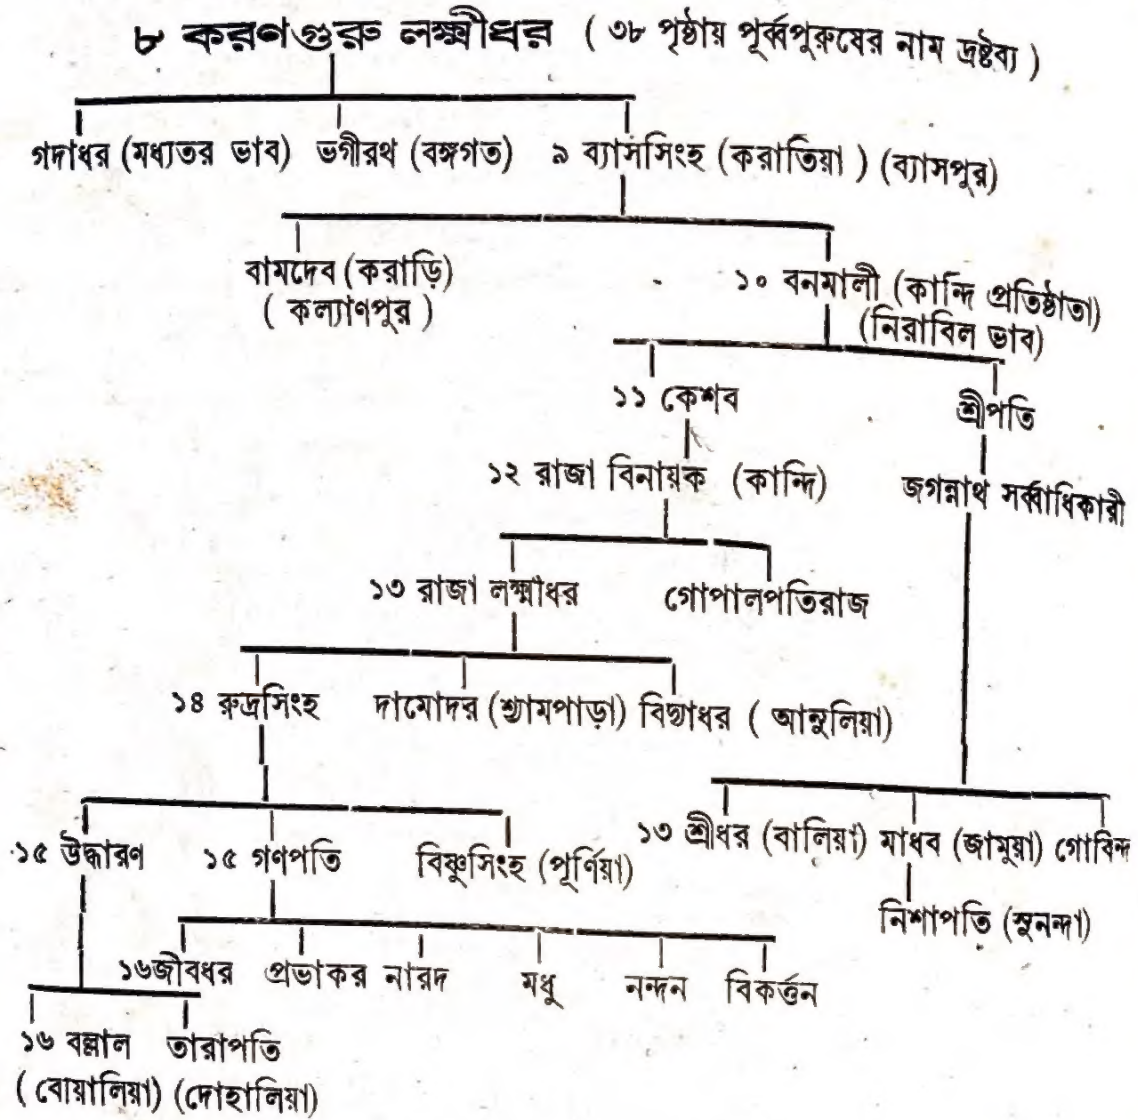 ৮ করণগুরু লক্ষ্মীধর ( ৩৮ পৃষ্ঠায় পূর্ব্বপুরুষের নাম দ্রষ্টব্য )
গদাধর (মধ্যতর ভাব) ভগীরথ (বঙ্গগত) ৯ ব্যাসসিংহ (করাতিয়া ) (ব্যাসপুর)
বামদেব (করাড়ি) ১০ বনমালী (কান্দি প্রতিষ্ঠাতা)
( কল্যাণপুর ) (নিরাবিল ভাব)
১১ কেশব শ্রীপতি
১২ রাজা বিনায়ক (কান্দি) জগন্নাথ সর্ব্বাধিকারী
১৩ রাজা লক্ষ্মীধর গোপালপতিরাজ
১৪ রুদ্রসিংহ দামোদর (শ্যামপাড়া) বিদ্যাধর ( আনুলিয়া)
১৫ উদ্ধারণ ১৫ গণপতি বিষ্ণুসিংহ (পূর্ণিয়া) ১৩ শ্রীধর (বালিয়া) মাধব (জামুয়া) গোবিন্দ
নিশাপতি (সুনন্দা)
১৬জীবধর প্রভাকর নারদ মধু নন্দন বিকর্ত্তন
১৬ বল্লাল তারাপতি
( বোয়ালিয়া) (দোহালিয়া)